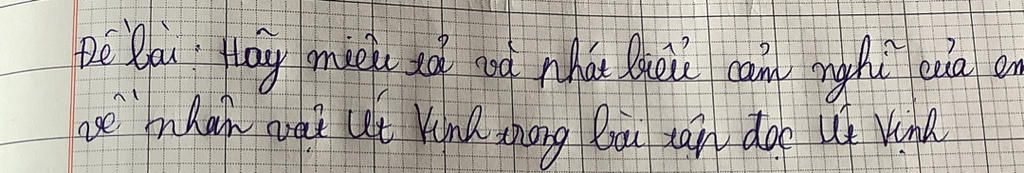 Đề bài: Hãy miêu tả và phát biểu cảm nghĩ của em
về nhân vật Út Vịnh trong bài tập đọc Út Vịnh